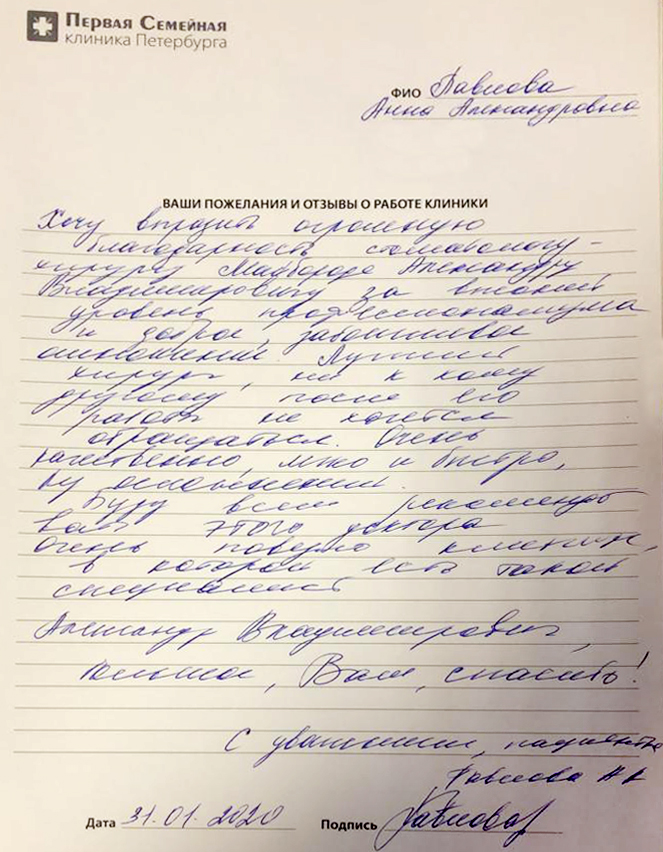 Первая Семейная
клиника Петербурга
ФИО Павлова
Анна Александровна
ВАШИ ПОЖЕЛАНИЯ И ОТЗЫВЫ О РАБОТЕ КЛИНИКИ
Хочу выразить огромную
благодарность стоматологу-
хирургу Майбороде Александру
Владимировичу за высокий
уровень профессионализма
и доброе, заботливое
отношение. Лучший
хирург, ни к кому
другому после его
работы не хочется
обращаться. Очень
качественно, легко и быстро,
без осложнений.
Буду всем рекомендо
вать этого доктора
Очень повезло клинике,
в которой есть такой
специалист
Александр Владимирович,
большое, Вам, спасибо!
С уважением, пациентка
Павлова А А
Дата 31.01.2020 Подпись Павлова